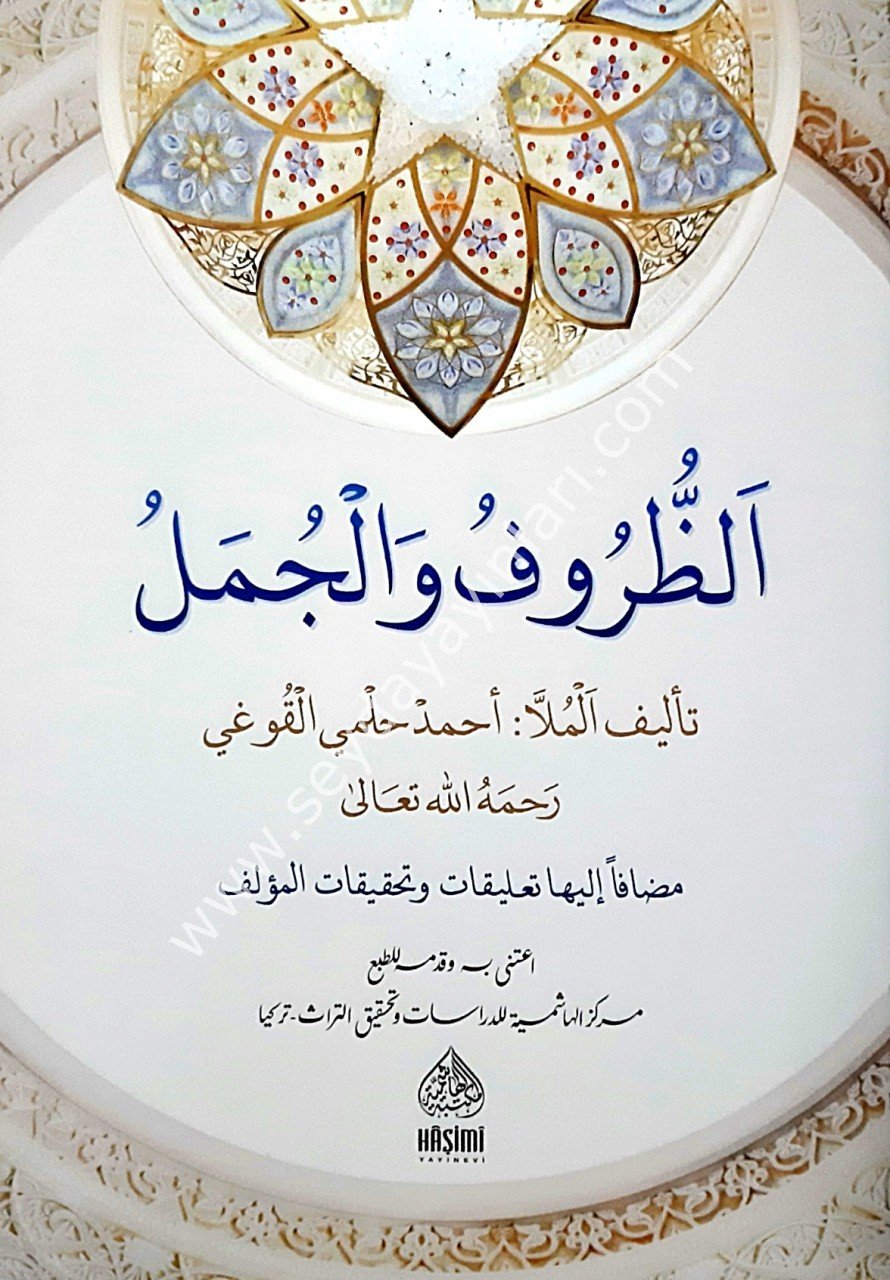 اَلظُّرُوفُ وَالْجُمَلُ
تأليف اَلْمُلَّا: أحمدْ حلْمي الْقُوغي
رَحمَهُ الله تعَالىٰ
مضافاً إليها تعليقات وتحقيقات المؤلف
اعتنى به وقدمه للطبع
مركز الهاشمية للدراسات وتحقيق التراث - تركيا
المكتبة الهاشمية
HÂŞİMİ
YAYINEVİ
www.seydayayinlari.com